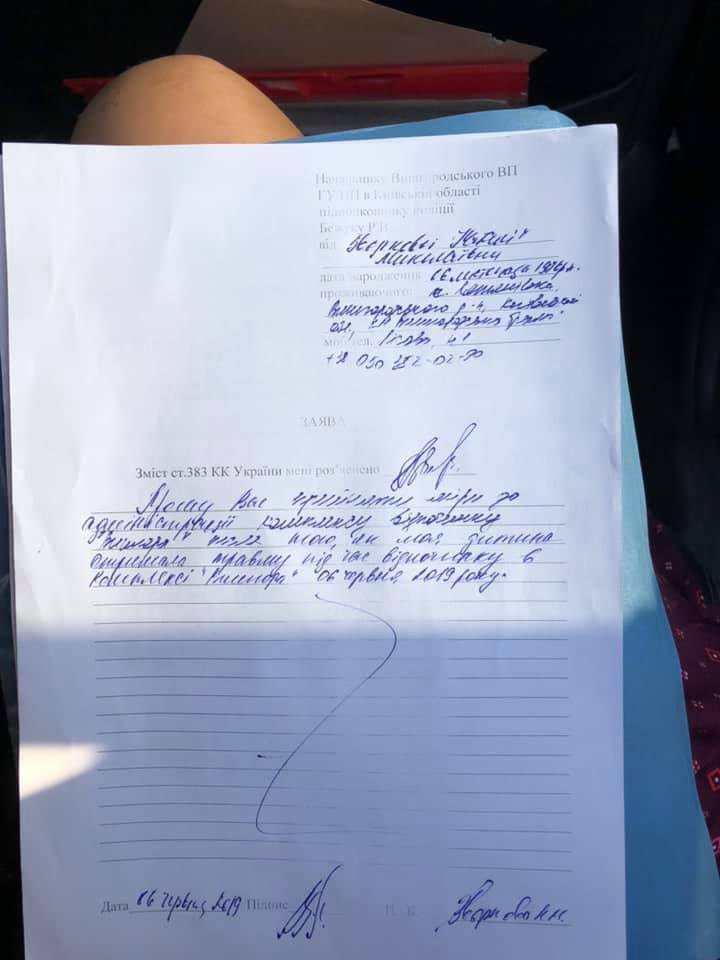 Начальнику Вишгородського ВП
ГУ НП в Київській області
підполковнику поліції
Бежуку Р.В.
від
Миколаївни
дата народження 06 листопада
проживаючого: с.
Вишгородського р-н, Київської
обл,
моб.тел.
+38 050
ЗАЯВА
Зміст ст.383 КК України мені роз'яснено
Прошу Вас прийняти міри до
адміністрації комплексу відпочинку
після того, як моя дитина
отримала травму під час відпочинку в
комплексі 06 червня 2019 року.
Дата 06 червня 2019 Підпис
П.І.Б.